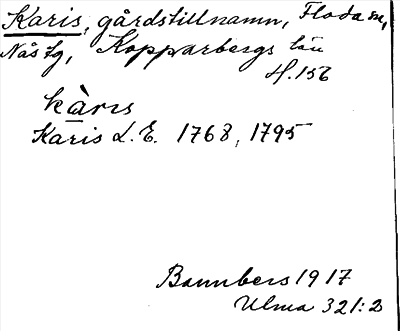 Karis, gårdstillnamn, Floda sn,
Nås tg, Kopparbergs län
H.156
kàrıs
Karis L.E. 1768, 1795
Bannbers 1917
Ulma 321:2